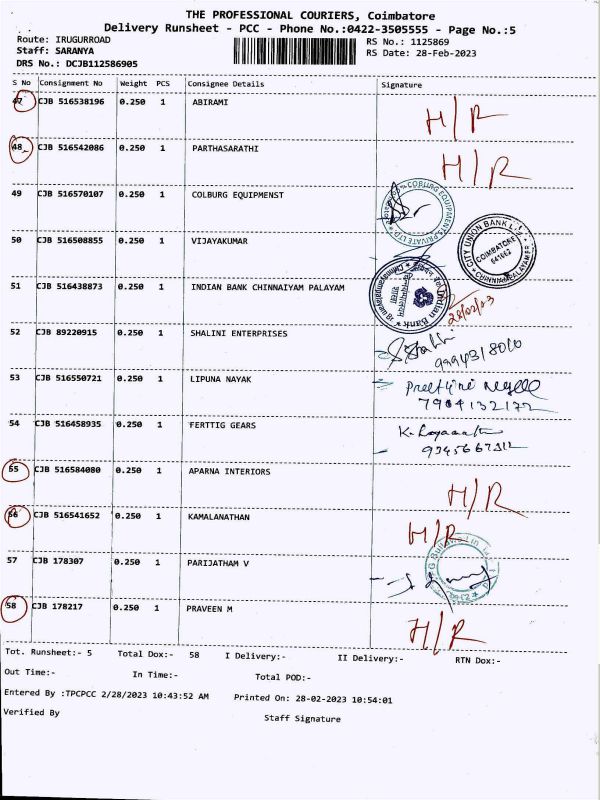 THE PROFESSIONAL COURIERS, Coimbatore
Delivery Runsheet - PCC - Phone No.:0422-3505555 - Page No.:5
Route: IRUGURROAD RS No.: 1125869
Staff: SARANYA RS Date: 28-Feb-2023
DRS No.: DCJB112586905
S No Consignment No Weight PCS Consignee Details Signature
47 CJB 516538196 0.250 1 ABIRAMI H/R
48 CJB 516542086 0.250 1 PARTHASARATHI H/R
49 CJB 516570107 0.250 1 COLBURG EQUIPMENST
COBURG EQUIPMENTS PRIVATE LTD
50 CJB 516508855 0.250 1 VIJAYAKUMAR
CITY UNION BANK LTD
COIMBATORE
641062
CHINNIAMPALAYAM
51 CJB 516438873 0.250 1 INDIAN BANK CHINNAIYAM PALAYAM
Indian Bank
28/02/23
52 CJB 89220915 0.250 1 SHALINI ENTERPRISES
9994318010
53 CJB 516550721 0.250 1 LIPUNA NAYAK
7904132172
54 CJB 516458935 0.250 1 FERTTIG GEARS
55 CJB 516584080 0.250 1 APARNA INTERIORS H/R
56 CJB 516541652 0.250 1 KAMALANATHAN H/R
57 CJB 178307 0.250 1 PARIJATHAM V
58 CJB 178217 0.250 1 PRAVEEN M H/R
Tot. Runsheet:- 5 Total Dox:- 58 I Delivery:- II Delivery:- RTN Dox:-
Out Time:- In Time:- Total POD:-
Entered By :TPCPCC 2/28/2023 10:43:52 AM Printed On: 28-02-2023 10:54:01
Verified By Staff Signature